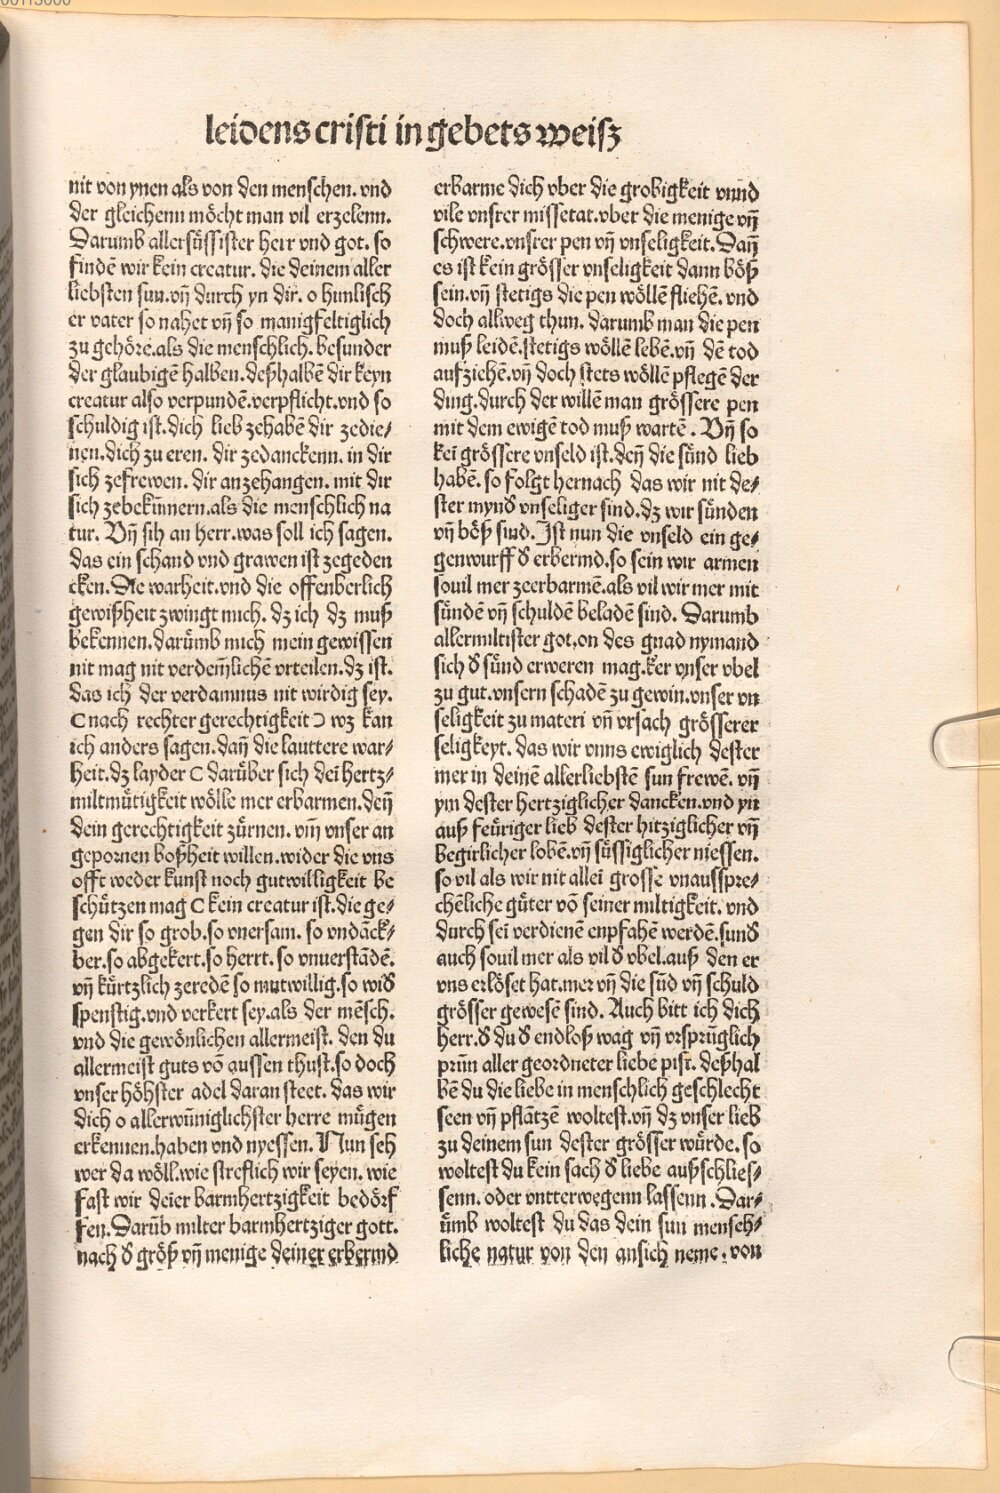 leidens cristi in gebets weiß
nit von ynen als von den menschen. vnd
der gleichenn möcht man vil erzelenn.
Darumb allersüssister herr vnd got. so
findẽ wir kein creatur. die deinem aller
liebsten sun. vñ durch yn dir. o himlisch
er vater so nahet vñ so manigfeltiglich
zu gehöre. als die menschlich. besunder
der glaubigẽ halben. deßhalbẽ dir keyn
creatur also verpundẽ. verpflicht. vnd so
schuldig ist. dich lieb zehabẽ dir zedie⸗
nen. dich zu eren. dir zedanckenn. in dir
sich zefrewen. dir anzehangen. mit dir
sich zebekũmern. als die menschlich na
tur. Vñ sih an herr. was soll ich sagen.
das ein schand vnd grawen ist zegeden
cken. Die warheit. vnd die offenberlich
gewißheit zwingt mich. dz ich dz muß
bekennen. darümb mich mein gewissen
nit mag nit verdem̃lichẽ vrteilen. dz ist.
das ich der verdamnus nit wirdig sey.
(nach rechter gerechtigkeit) wz kan
ich anders sagen. dañ die lauttere war⸗
heit. dz layder ( darüber sich dei hertz⸗
miltmütigkeit wölle mer erbarmen. deñ
dein gerechtigkeit zürnen. vm̃ vnser an
gepornen boßheit willen. wider die vns
offt weder kunst noch gutwilligkeit be
schützen mag ( kein creatur ist. die ge⸗
gen dir so grob. so vnersam. so vndãck⸗
ber. so abgekert. so herrt. so vnuerstãdẽ.
vñ kürtzlich zeredẽ so mutwillig. so wid̕
spenstig. vnd verkert sey. als der mẽsch.
vnd die gewönlichen allermeist. den du
allermeist guts võ aussen thust. so doch
vnser höhster adel daran steet. das wir
dich o allerwũniglichster herre mügen
erkennen. haben vnd nyessen. Nun seh
wer da wöll. wie streflich wir seyen. wie
fast wir deier barmhertzigkeit bedörf
fen. Darũb milter barmhertziger gott.
nach d̕ größ vñ menige deiner erbermd
erbarme dich vber die grobigkeit vnnd
vile vnsrer missetat. vber die menige vñ
schwere. vnsrer pen vñ vnseligkeit. Dañ
es ist kein grösser vnseligkeit dann böß
sein. vñ stetigs die pen wöllẽ fliehẽ. vnd
doch allweg thun. darumb man die pen
muß leidẽ. stetigs wöllẽ lebẽ. vñ dẽ tod
aufziehẽ. vñ doch stets wöllẽ pflegẽ der
ding. durch der willẽ man grössere pen
mit dem ewigẽ tod muß wartẽ. Vñ so
keĩ grössere vnseld ist. deñ die sünd lieb
habẽ. so folgt hernach das wir nit de⸗
ster mynd̕ vnseliger sind. dz wir sünden
vñ böß sind. Ist nun die vnseld ein ge⸗
genwurff d̕ erbermd. so sein wir armen
souil mer zeerbarmẽ. als vil wir mer mit
sündẽ vñ schuldẽ beladẽ sind. Darumb
allermiltister got. on des gnad nymand
sich d̕ sünd erweren mag. ker vnser vbel
zu gut. vnsern schadẽ zu gewin. vnser vn
seligkeit zu materi vñ vrsach grösserer
seligkeyt. das wir vnns ewiglich dester
mer in deinẽ allerliebstẽ sun frewẽ. vñ
ym dester hertziglicher dancken. vnd yn
auß feüriger lieb dester hitziglicher vñ
begirlicher lobẽ. vñ süssiglicher niessen.
so vil als wir nit alleĩ grosse vnausspre⸗
chẽliche güter võ seiner miltigkeit. vnd
durch seĩ verdienẽ enpfahẽ werdẽ. sund̕
auch souil mer als vil d̕ vbel. auß den er
vns erlöset hat. mer vñ die sũd vñ schuld
grösser gewesẽ sind. Auch bitt ich dich
herr. d̕ du d̕ endloß wag vñ vrsprũglich
prũn aller geordneter liebe pist. deßhal
bẽ du die liebe in menschlich geschlecht
seen vñ pflãtzẽ woltest. vñ dz vnser lieb
zu deinem sun dester grösser würde. so
woltest du kein sach d̕ liebe außschlies⸗
senn. oder vntterwegenn lassenn. Dar⸗
ümb woltest du das dein sun mensch⸗
liche natur von den ansich neme. von